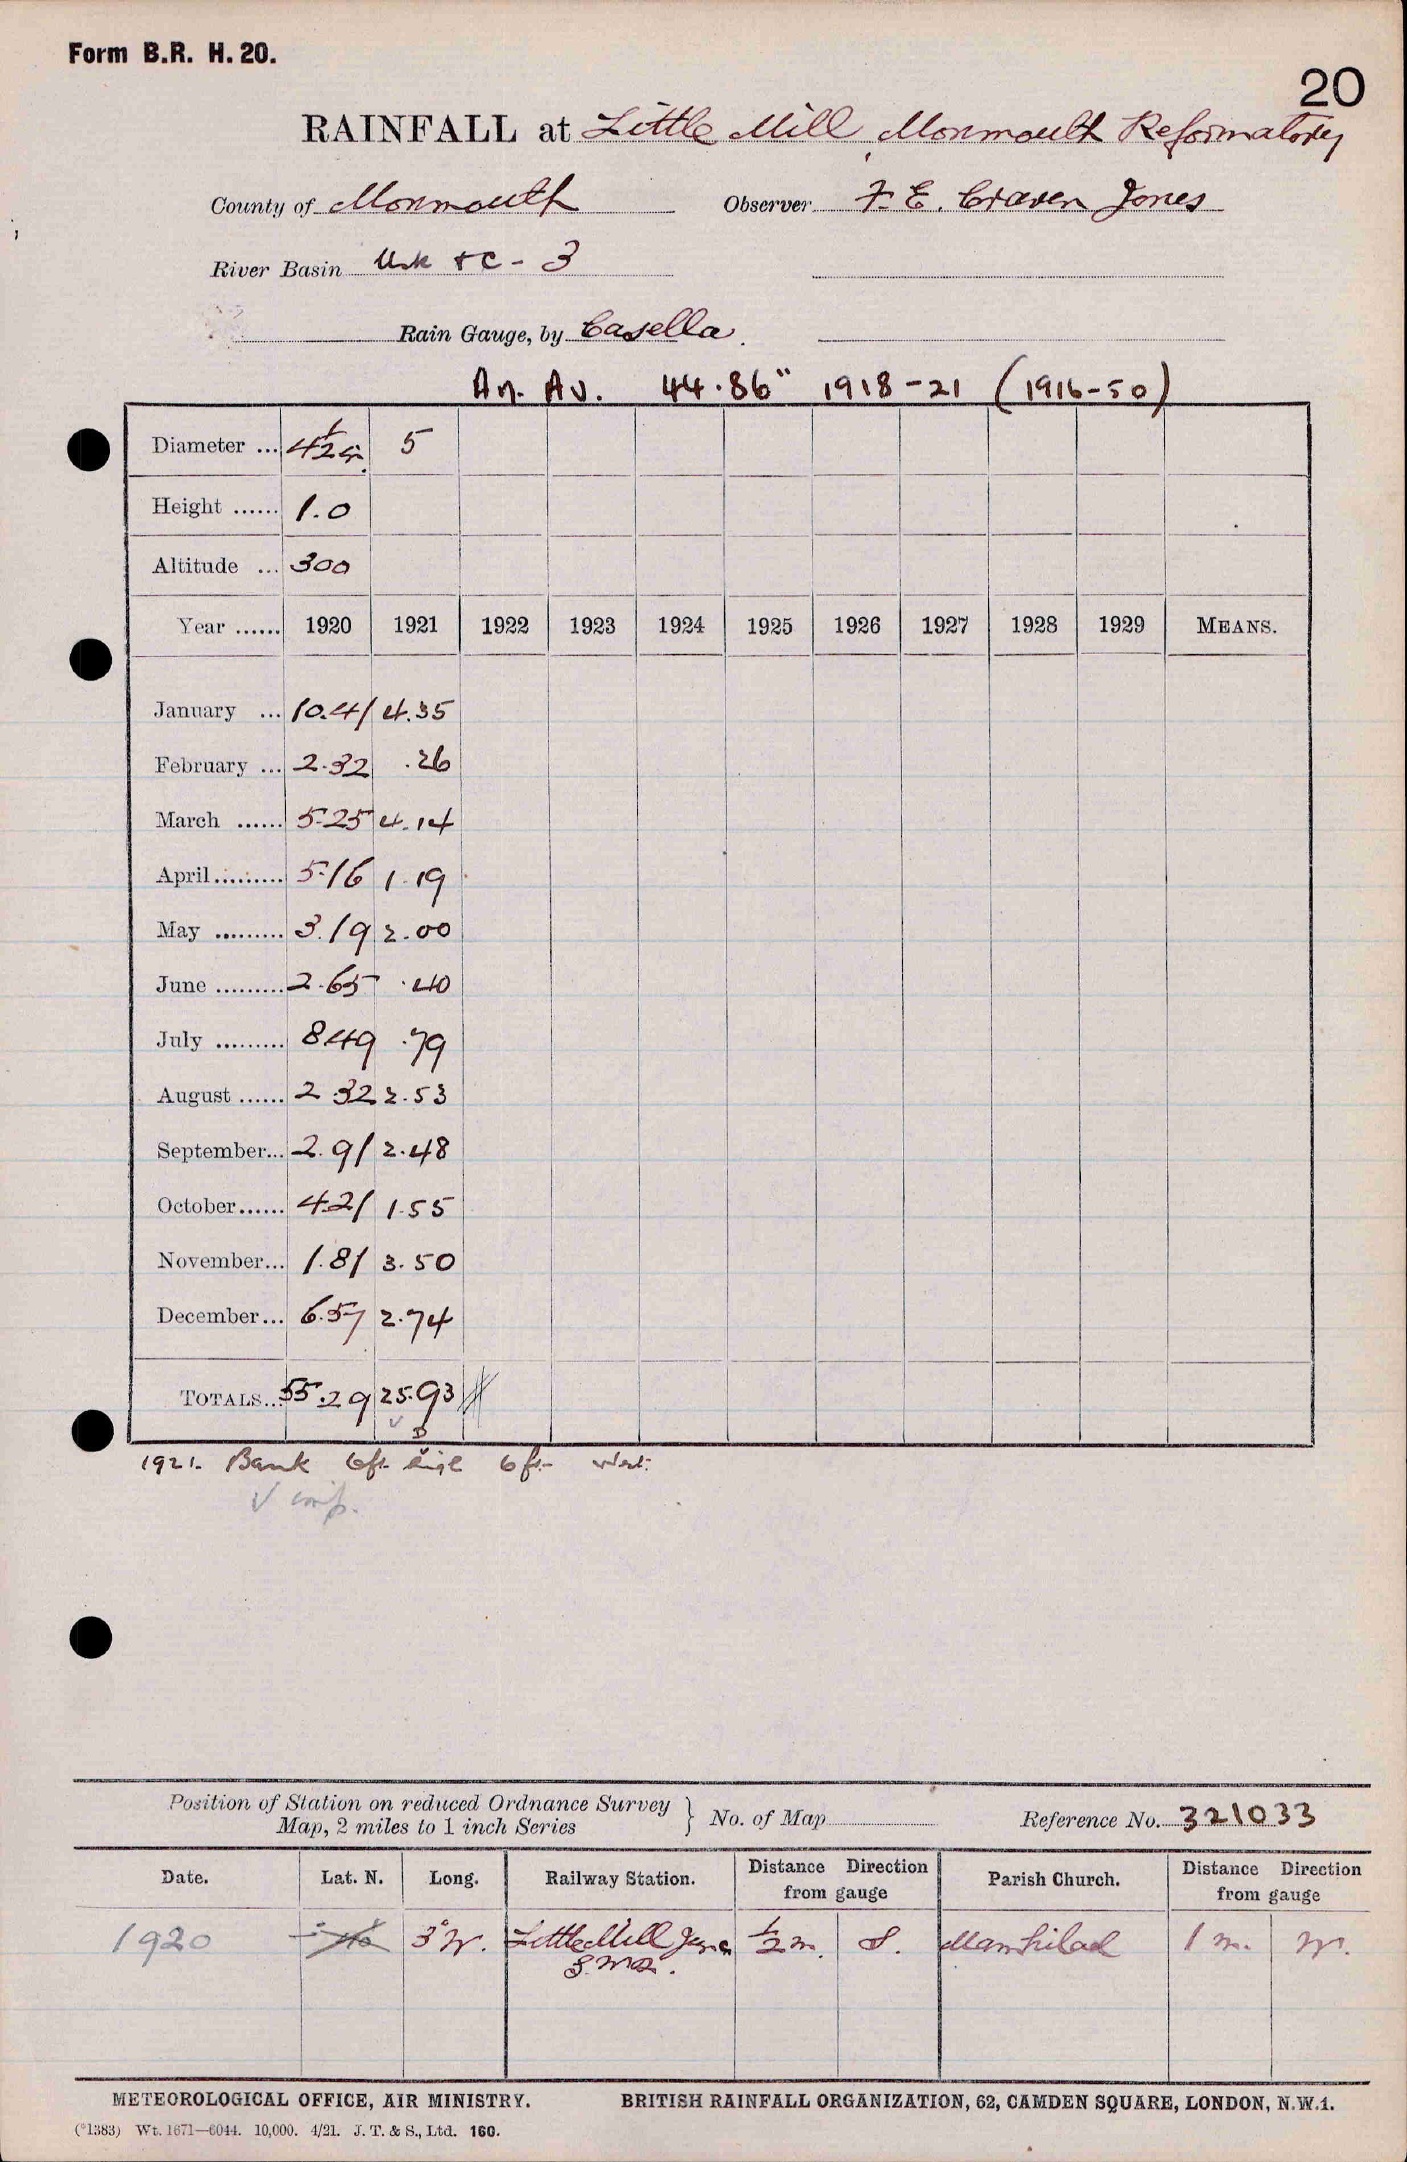 Form B.R. H. 20.
20
RAINFALL at Little Mill, Monmouth Reformatory
County of Monmouth Observer F. E. Craven Jones
River Basin Usk &c - 3
Rain Gauge, by Casella.
An. Av. 44.86" 1918-21 (1916-50)
Diameter ... 4½ 5
Height ...... 1.0
Altitude ... 300
Year ...... 1920 1921 1922 1923 1924 1925 1926 1927 1928 1929 MEANS.
January ... 10.41 4.35
February ... 2.32 .26
March ...... 5.25 4.14
April......... 5.16 1.19
May ......... 3.19 2.00
June ......... 2.65 .40
July ......... 8.49 .79
August ...... 2.32 2.53
September... 2.91 2.48
October...... 4.21 1.55
November... 1.81 3.50
December... 6.57 2.74
TOTALS... 55.29 25.93
1921. Bank 6ft. high 6ft. West.
Position of Station on reduced Ordnance Survey Map, 2 miles to 1 inch Series } No. of Map Reference No. 321033
Date. Lat. N. Long. Railway Station. Distance Direction from gauge Parish Church. Distance Direction from gauge
1920 3° W. Little Mill Junc. ½ m. S. Mamhilad 1 m. W.
METEOROLOGICAL OFFICE, AIR MINISTRY. BRITISH RAINFALL ORGANIZATION, 62, CAMDEN SQUARE, LONDON, N.W.1.
(*1383) Wt. 1671—6044. 10,000. 4/21. J. T. & S., Ltd. 160.